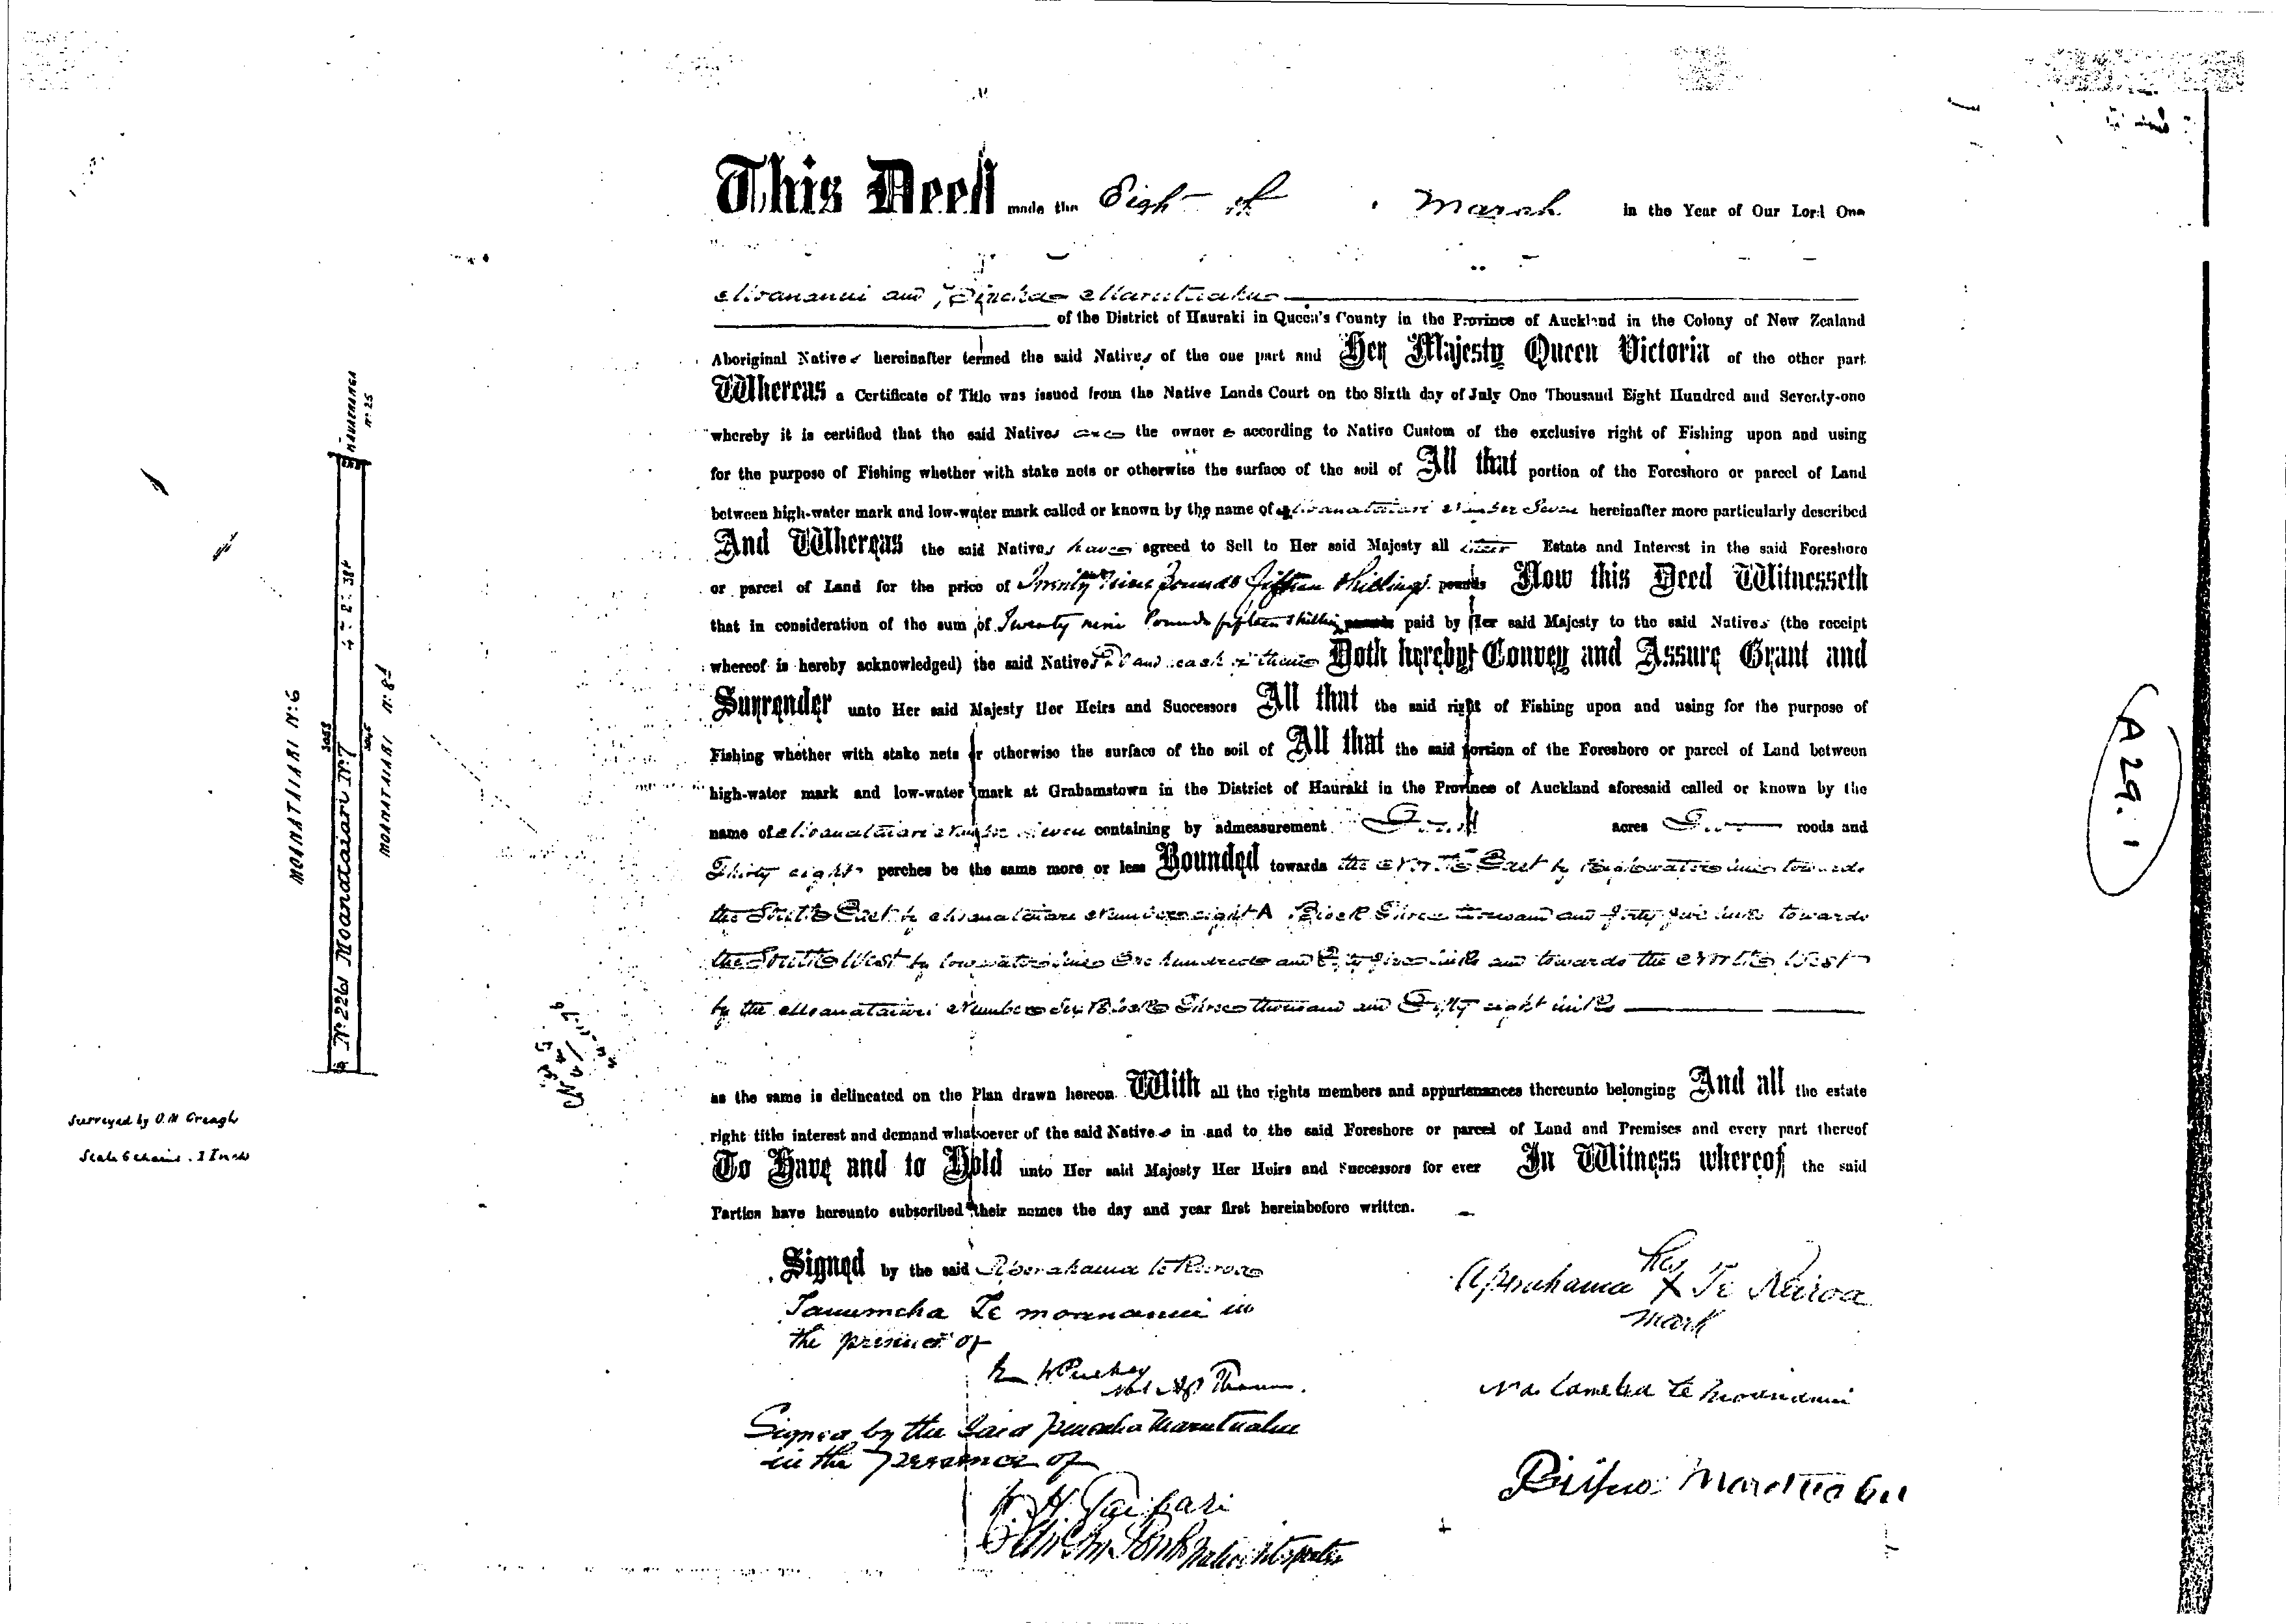 This Deed made the Eighth of March in the Year of Our Lord One
Moananui and Marutuahu
of the District of Hauraki in Queen's County in the Province of Auckland in the Colony of New Zealand
Aboriginal Natives hereinafter termed the said Natives of the one part and Her Majesty Queen Victoria of the other part
Whereas a Certificate of Title was issued from the Native Lands Court on the Sixth day of July One Thousand Eight Hundred and Seventy-one
whereby it is certified that the said Natives are the owners according to Native Custom of the exclusive right of Fishing upon and using
for the purpose of Fishing whether with stake nets or otherwise the surface of the soil of All that portion of the Foreshore or parcel of Land
between high-water mark and low-water mark called or known by the name of Moanataiari Number Seven hereinafter more particularly described
And Whereas the said Natives have agreed to Sell to Her said Majesty all their Estate and Interest in the said Foreshore
or parcel of Land for the price of Twenty Nine Pounds fifteen Shillings pounds Now this Deed Witnesseth
that in consideration of the sum of Twenty nine Pounds fifteen shillings pounds paid by Her said Majesty to the said Natives (the receipt
whereof is hereby acknowledged) the said Natives and each of them Doth hereby Convey and Assure Grant and
Surrender unto Her said Majesty Her Heirs and Successors All that the said right of Fishing upon and using for the purpose of
Fishing whether with stake nets or otherwise the surface of the soil of All that the said portion of the Foreshore or parcel of Land between
high-water mark and low-water mark at Grahamstown in the District of Hauraki in the Province of Auckland aforesaid called or known by the
name of Moanataiari Number Seven containing by admeasurement Four acres Two roods and
Thirty eight perches be the same more or less Bounded towards the North East by Highwater line towards
the South East by Moanataiari Number eight A Block Three thousand and forty five links towards
the South West by low water line One hundred and five links and towards the North West
by the Moanataiari Number Six Block Three thousand and Fifty eight links
as the same is delineated on the Plan drawn hereon With all the rights members and appurtenances thereunto belonging And all the estate
right title interest and demand whatsoever of the said Natives in and to the said Foreshore or parcel of Land and Premises and every part thereof
To Have and to Hold unto Her said Majesty Her Heirs and Successors for ever In Witness whereof the said
Parties have hereunto subscribed their names the day and year first hereinbefore written.
Signed by the said Aperahama te Reiroa
Tanumeha Te moananui in
the presence of
Puckey
Signed by the said Marutuahu
in the presence of
H Taipari
Aperahama his X Te Reiroa
mark
Na Tameha Te Moananui
Marutuahu
MOANATAIARI No. 6
3058
4 " 2 " 38 P
No. 2261 Moanataiari No. 7
3045
MOANATAIARI No. 8A
No. 25
Surveyed by O. M Creagh
Scale 6 chains . 1 Inch
A 29. 1